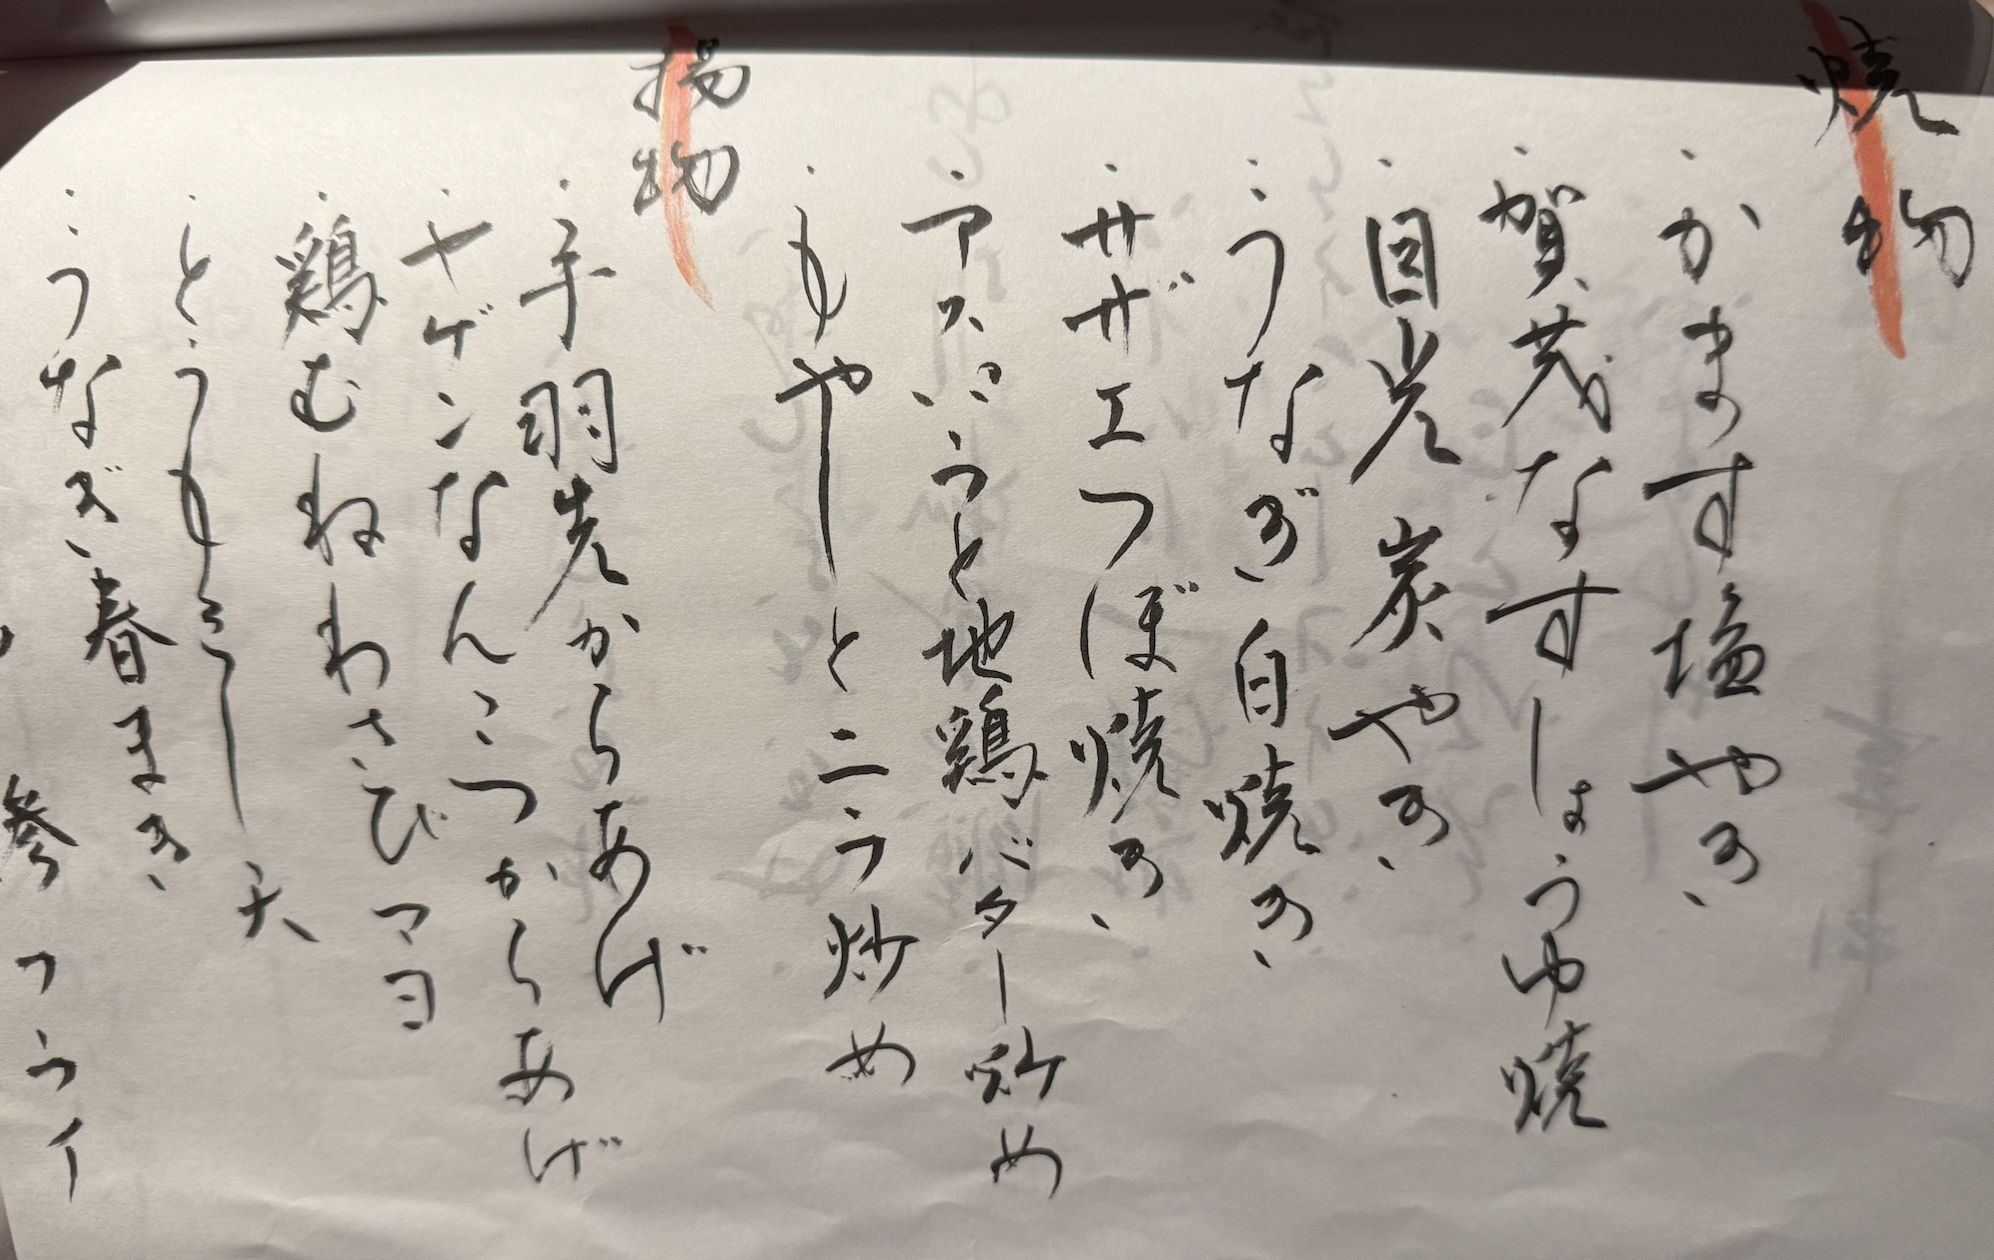 焼物
・かます塩やき
・賀茂なすしょうゆ焼
・目光 炭やき
・うなぎ白焼き
・サザエつぼ焼き
・アスパラと地鶏バター炒め
・もやしとニラ炒め
揚物
・手羽先からあげ
・ヤゲンなんこつからあげ
・鶏むねわさびマヨ
・とうもろこし天
・うなぎ春まき